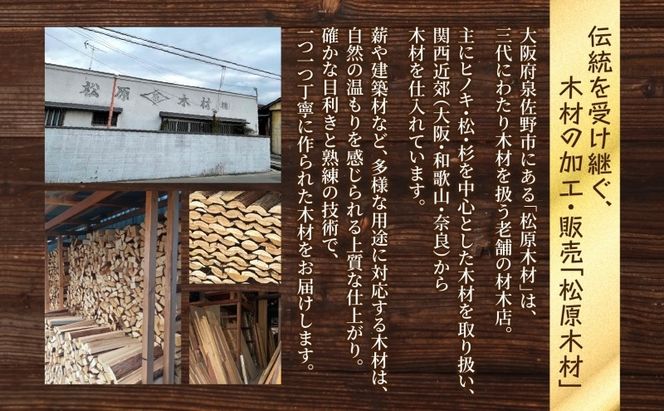 伝統を受け継ぐ、
木材の加工・販売「松原木材」
大阪府泉佐野市にある「松原木材」は、
三代にわたり木材を扱う老舗の材木店。
主にヒノキ・松・杉を中心とした木材を取り扱い、
関西近郊（大阪・和歌山・奈良）から
木材を仕入れています。
薪や建築材など、多様な用途に対応する木材は、
自然の温もりを感じられる上質な仕上がり。
確かな目利きと熟練の技術で、
一つ一つ丁寧に作られた木材をお届けします。
松原 木材